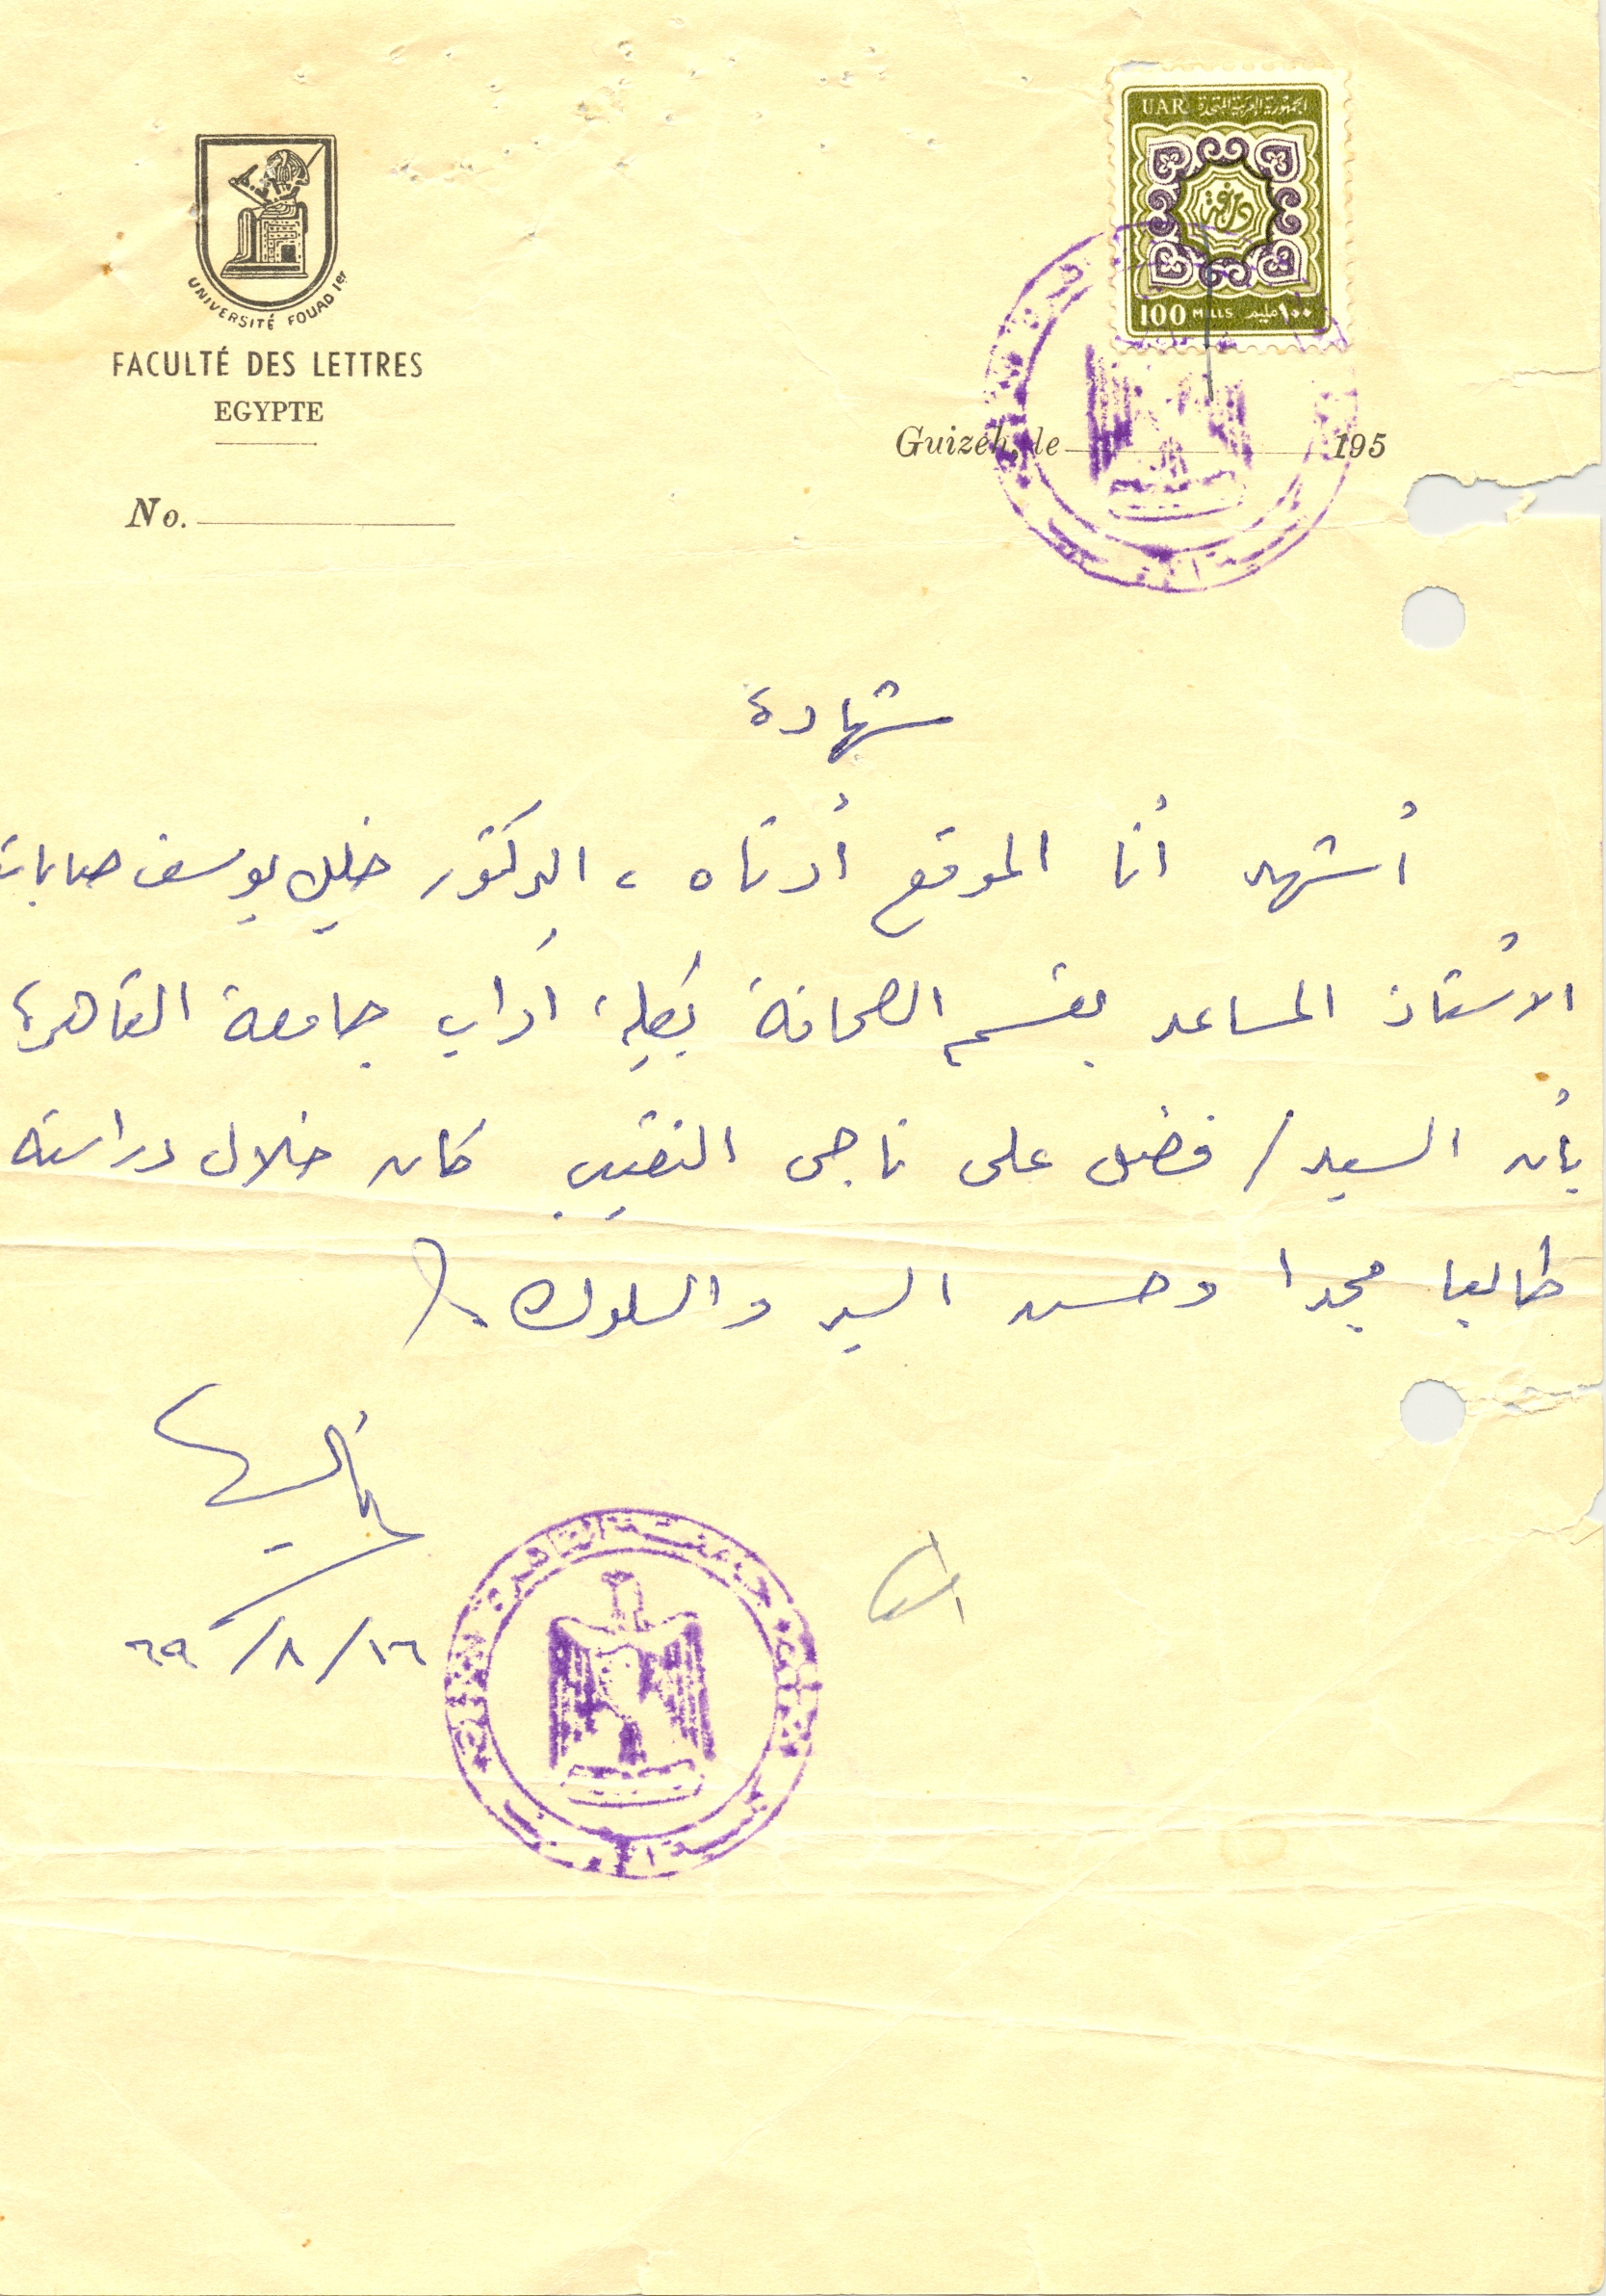 UAR الجمهورية العربية المتحدة
دمغة
100 MILLS ١٠٠ مليم
UNIVERSITÉ FOUAD 1er
FACULTÉ DES LETTRES
EGYPTE
Guizeh, le 195
No.
شهادة
أشهد أنا الموقع أدناه ، الدكتور خليل يوسف صابات
الأستاذ المساعد بقسم الصحافة بكلية آداب جامعة القاهرة
بأن السيد / فضل على ناجى النقيب كان خلال دراسته
طالبا مجدا وحسن السير والسلوك
١٦ / ٨ / ٦٩
جامعة القاهرة